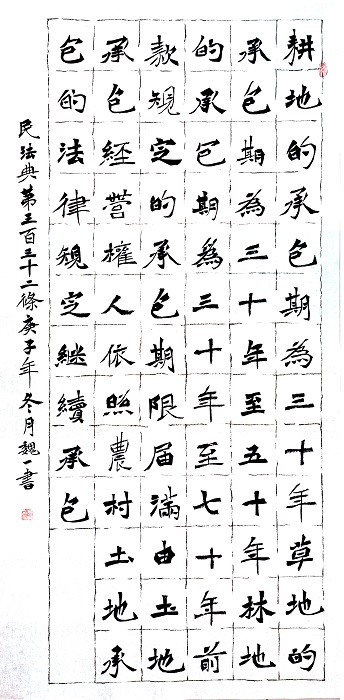 耕地的承包期為三十年草地的
承包期為三十年至五十年林地
的承包期為三十年至七十年前
款規定的承包期限届滿由土地
承包經營權人依照農村土地承
包的法律規定継續承包
民法典第三百三十二條庚子年冬月魏一書